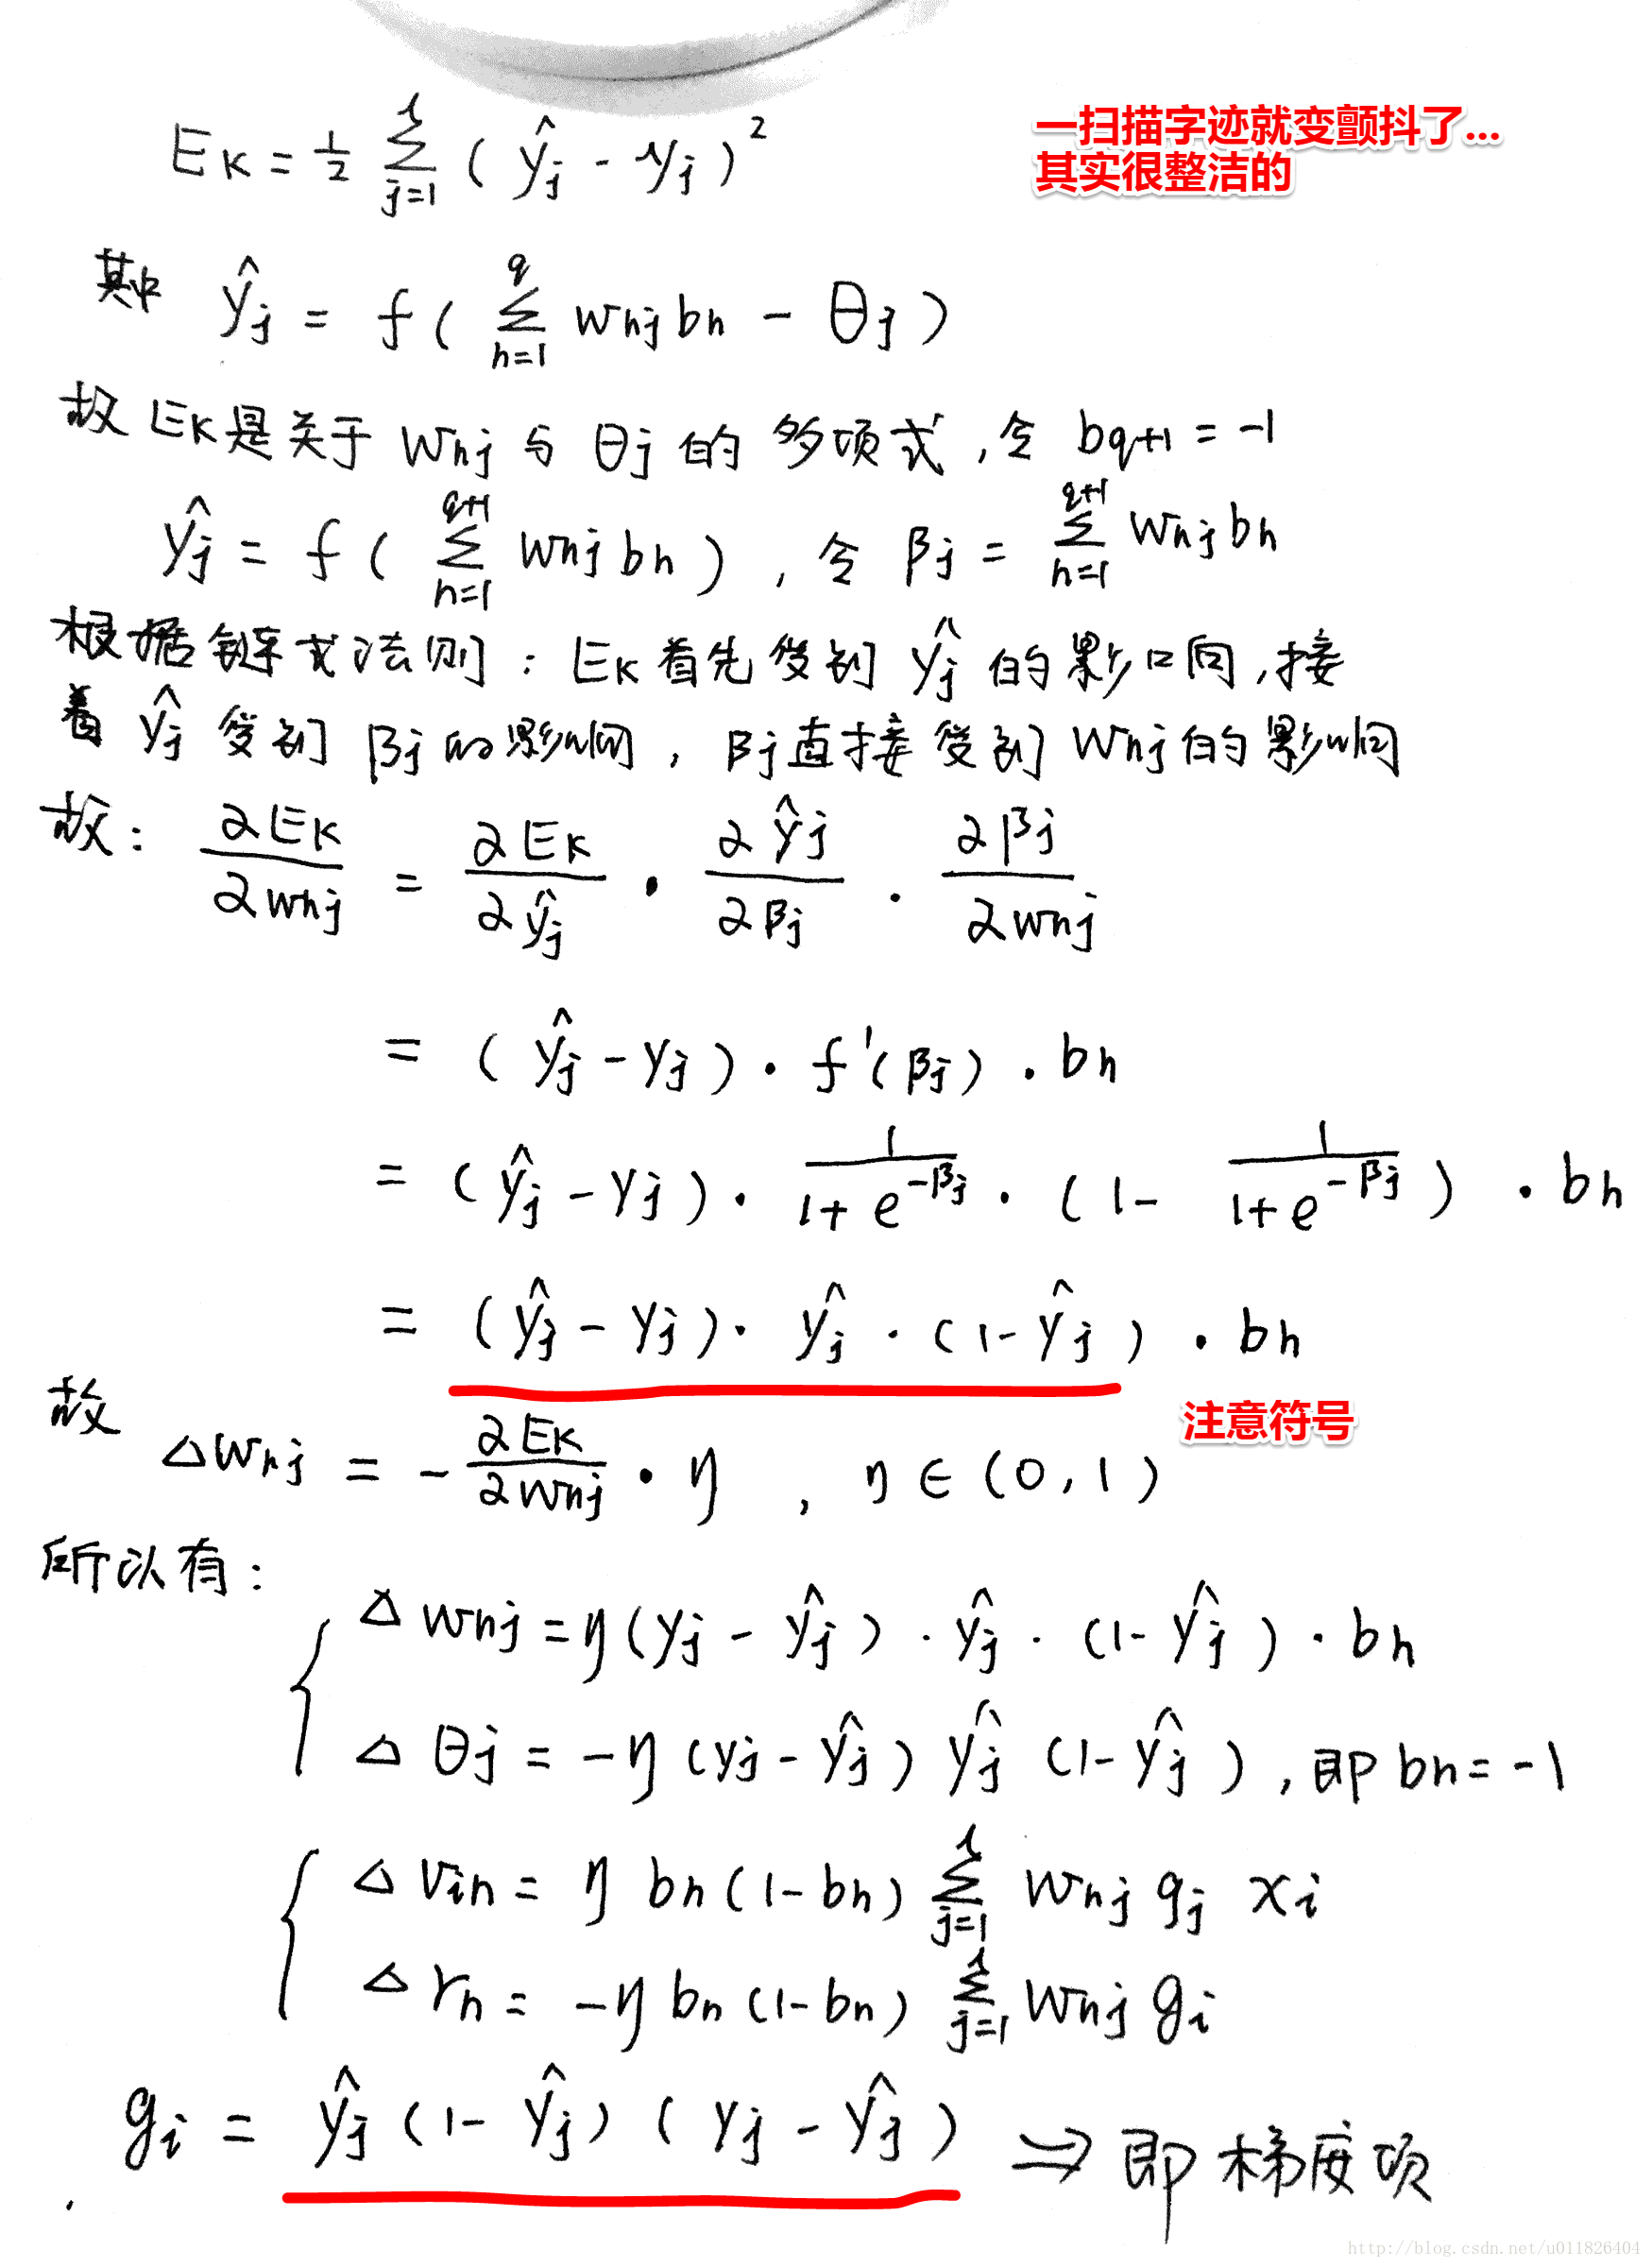 E_K = 1/2 Σ_{j=1}^{l} (ŷ_j - y_j)²
一扫描字迹就变颤抖了...
其实很整洁的
其中 ŷ_j = f( Σ_{h=1}^{q} w_hj b_h - θ_j )
故 E_K是关于 w_hj 与 θ_j 的 多项式,令 b_{q+1} = -1
ŷ_j = f ( Σ_{h=1}^{q+1} w_hj b_h ) , 令 β_j = Σ_{h=1}^{q+1} w_hj b_h
根据链式法则: E_K 首先受到 ŷ_j 的影响,接
着 ŷ_j 受到 β_j 的影响, β_j直接受到 w_hj 的影响
故: ∂E_K/∂w_hj = ∂E_K/∂ŷ_j · ∂ŷ_j/∂β_j · ∂β_j/∂w_hj
= (ŷ_j - y_j) · f'(β_j) · b_h
= (ŷ_j - y_j) · 1/(1+e^{-β_j}) · (1 - 1/(1+e^{-β_j})) · b_h
= (ŷ_j - y_j) · ŷ_j · (1 - ŷ_j) · b_h
注意符号
故 △w_hj = - ∂E_K/∂w_hj · η , η ∈ (0, 1)
所以有:
△ w_hj = η (y_j - ŷ_j) · ŷ_j · (1 - ŷ_j) · b_h
△ θ_j = -η (y_j - ŷ_j) ŷ_j (1 - ŷ_j) , 即 b_h = -1
△ v_ih = η b_h (1 - b_h) Σ_{j=1}^{l} w_hj g_j x_i
△ r_h = -η b_h (1 - b_h) Σ_{j=1}^{l} w_hj g_i
g_i = ŷ_j (1 - ŷ_j) (y_j - ŷ_j) ⇒ 即 梯度项
http://blog.csdn.net/u011826404